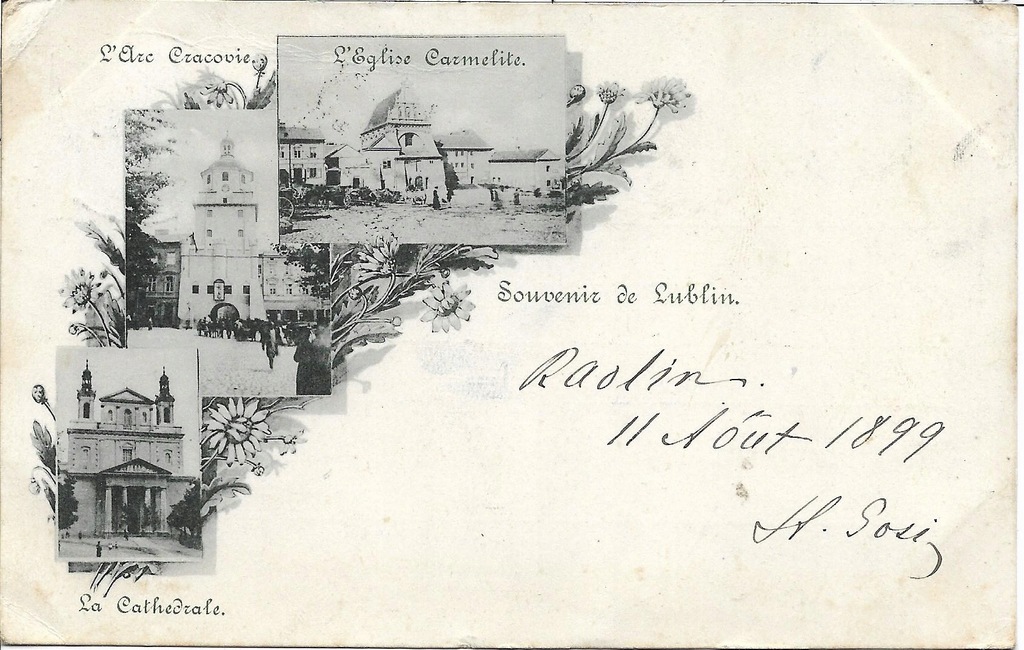 L'Arc Cracovie.
L'Eglise Carmelite.
Souvenir de Lublin.
Radlin.
11 Août 1899
H.
La Cathedrale.